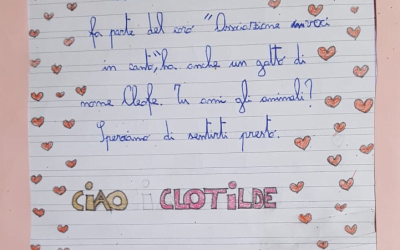 fa parte del coro "Associazione invoci
in canto", ha anche un gatto di
nome Cleofe. Tu ami gli animali?
Speriamo di sentirti presto.
CIAO CLOTILDE